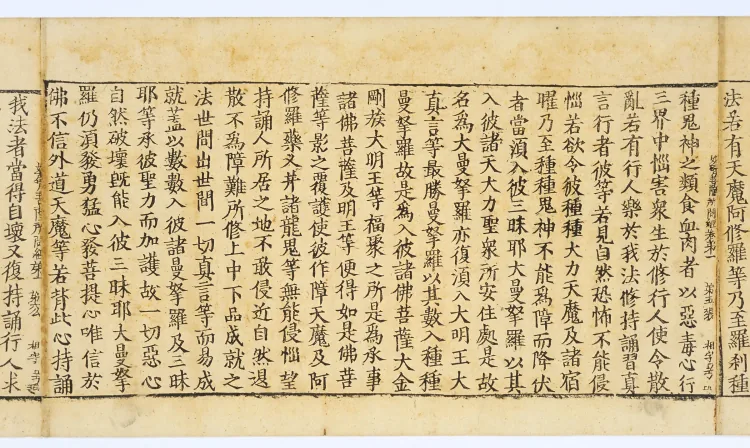 法若有天魔阿修羅等乃至羅刹種
種鬼神之類食血肉者以惡毒心行
三界中惱害衆生於修行人使令散
亂若有行人樂於我法修持誦習真
言行者彼等若見自然恐怖不能侵
惱若欲令彼種種大力天魔及諸宿
曜乃至種種鬼神不能爲障而降伏
者當須入彼三昧耶大曼拏羅以其
入彼諸天大力聖衆所安住處是故
名爲大曼拏羅亦復須入大明王大
真言等最勝曼拏羅以其數入種種
曼拏羅故是爲入彼諸佛菩薩大金
剛族大明王等福聚之所是爲承事
諸佛菩薩及明王等便得如是佛菩
薩等影之覆護使彼作障天魔及阿
修羅藥叉并諸龍鬼等無能侵惱望
持誦人所居之地不敢侵近自然退
散不爲障難所修上中下品成就之
法世間出世間一切真言等而易成
就蓋以數數入彼諸曼拏羅及三昧
耶等承彼聖力而加護故一切惡心
自然破壞既能入彼三昧耶大曼拏
羅仍須發勇猛心發菩提心唯信於
佛不信外道天魔等若背此心持誦
我法者當得自壞又復持誦行人求